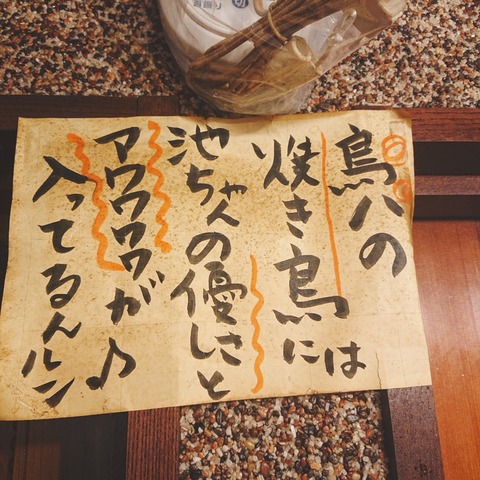 鳥八の
焼き鳥には
池ちゃんの優しさと
アワワワワが♪
入ってるんルン